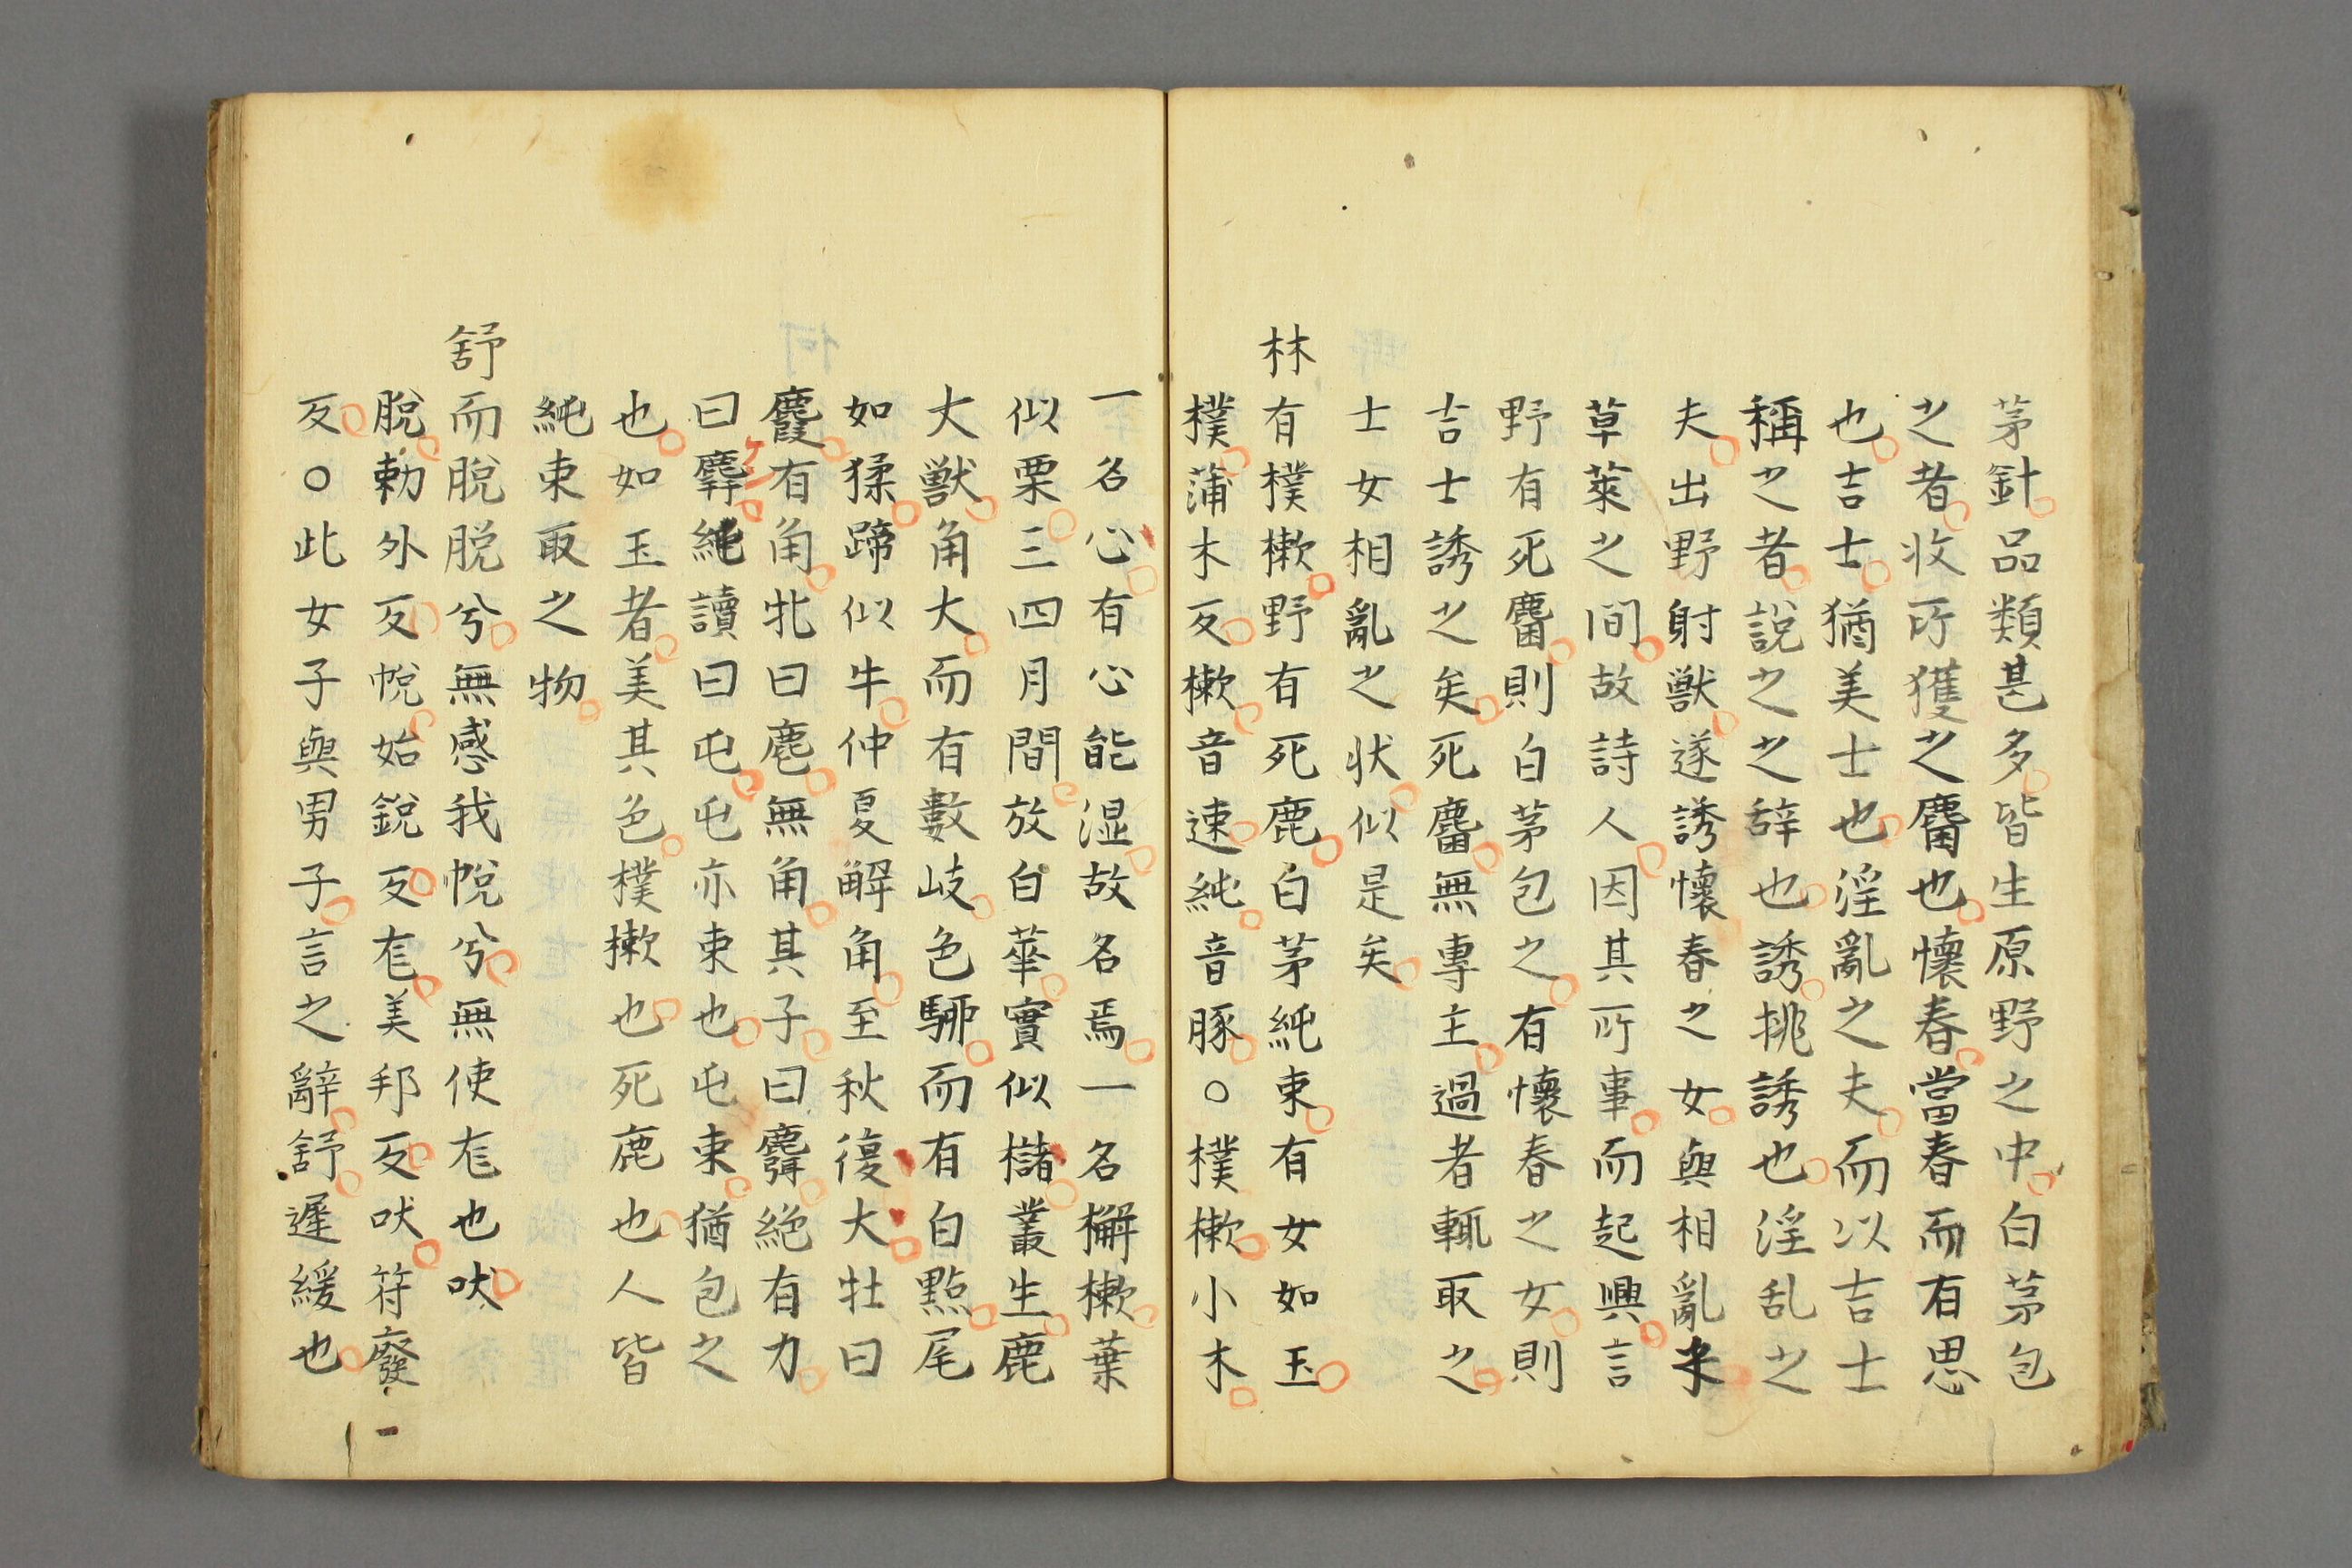 茅針品類甚多皆生原野之中白茅包
之者收所獲之麕也懷春當春而有思
也吉士猶美士也淫亂之夫而以吉士
稱之者說之之辞也誘挑誘也淫乱之
夫出野射獣遂誘懷春之女與相亂
草萊之間故詩人因其所事而起興言
野有死麕則白茅包之有懷春之女則
吉士誘之矣死麕無專主過者輒取之
士女相亂之状似是矣
林有樸樕野有死鹿白茅純束有女如玉
樸蒲木反樕音速純音豚○樸樕小木
一名心有心能湿故名焉一名槲樕葉
似栗三四月間放白華實似櫧叢生鹿
大獣角大而有數岐色騨而有白點尾
如猱蹄似牛仲夏解角至秋復大牡曰
麚有角牝曰麀無角其子曰麛絶有力
曰麉純讀曰屯屯亦束也屯束猶包之
也如玉者美其色樸樕也死鹿也人皆
純束取之物
舒而脫脱兮無感我帨兮無使尨也吠
脫勅外反帨始銳反尨美邦反吠符廢
反○此女子與男子言之辭舒遲緩也